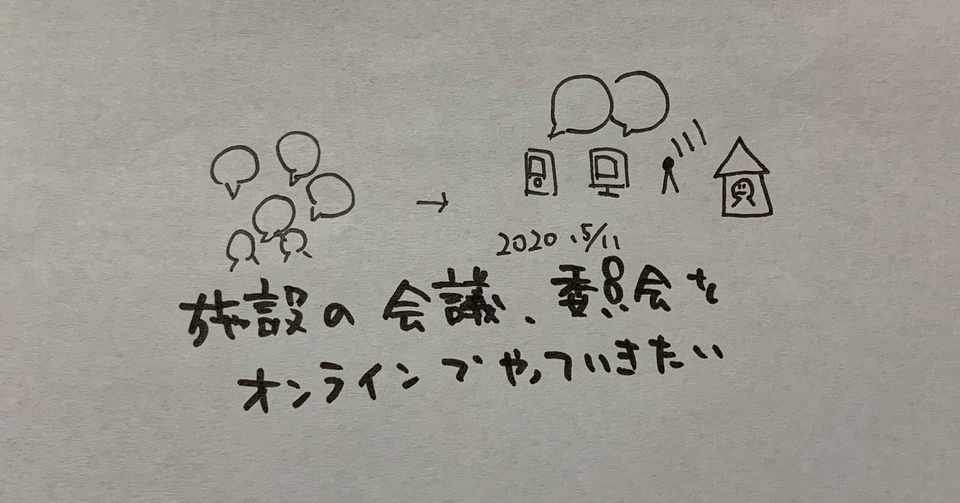 2020.5/11
施設の会議、委員会を
オンラインでやっていきたい